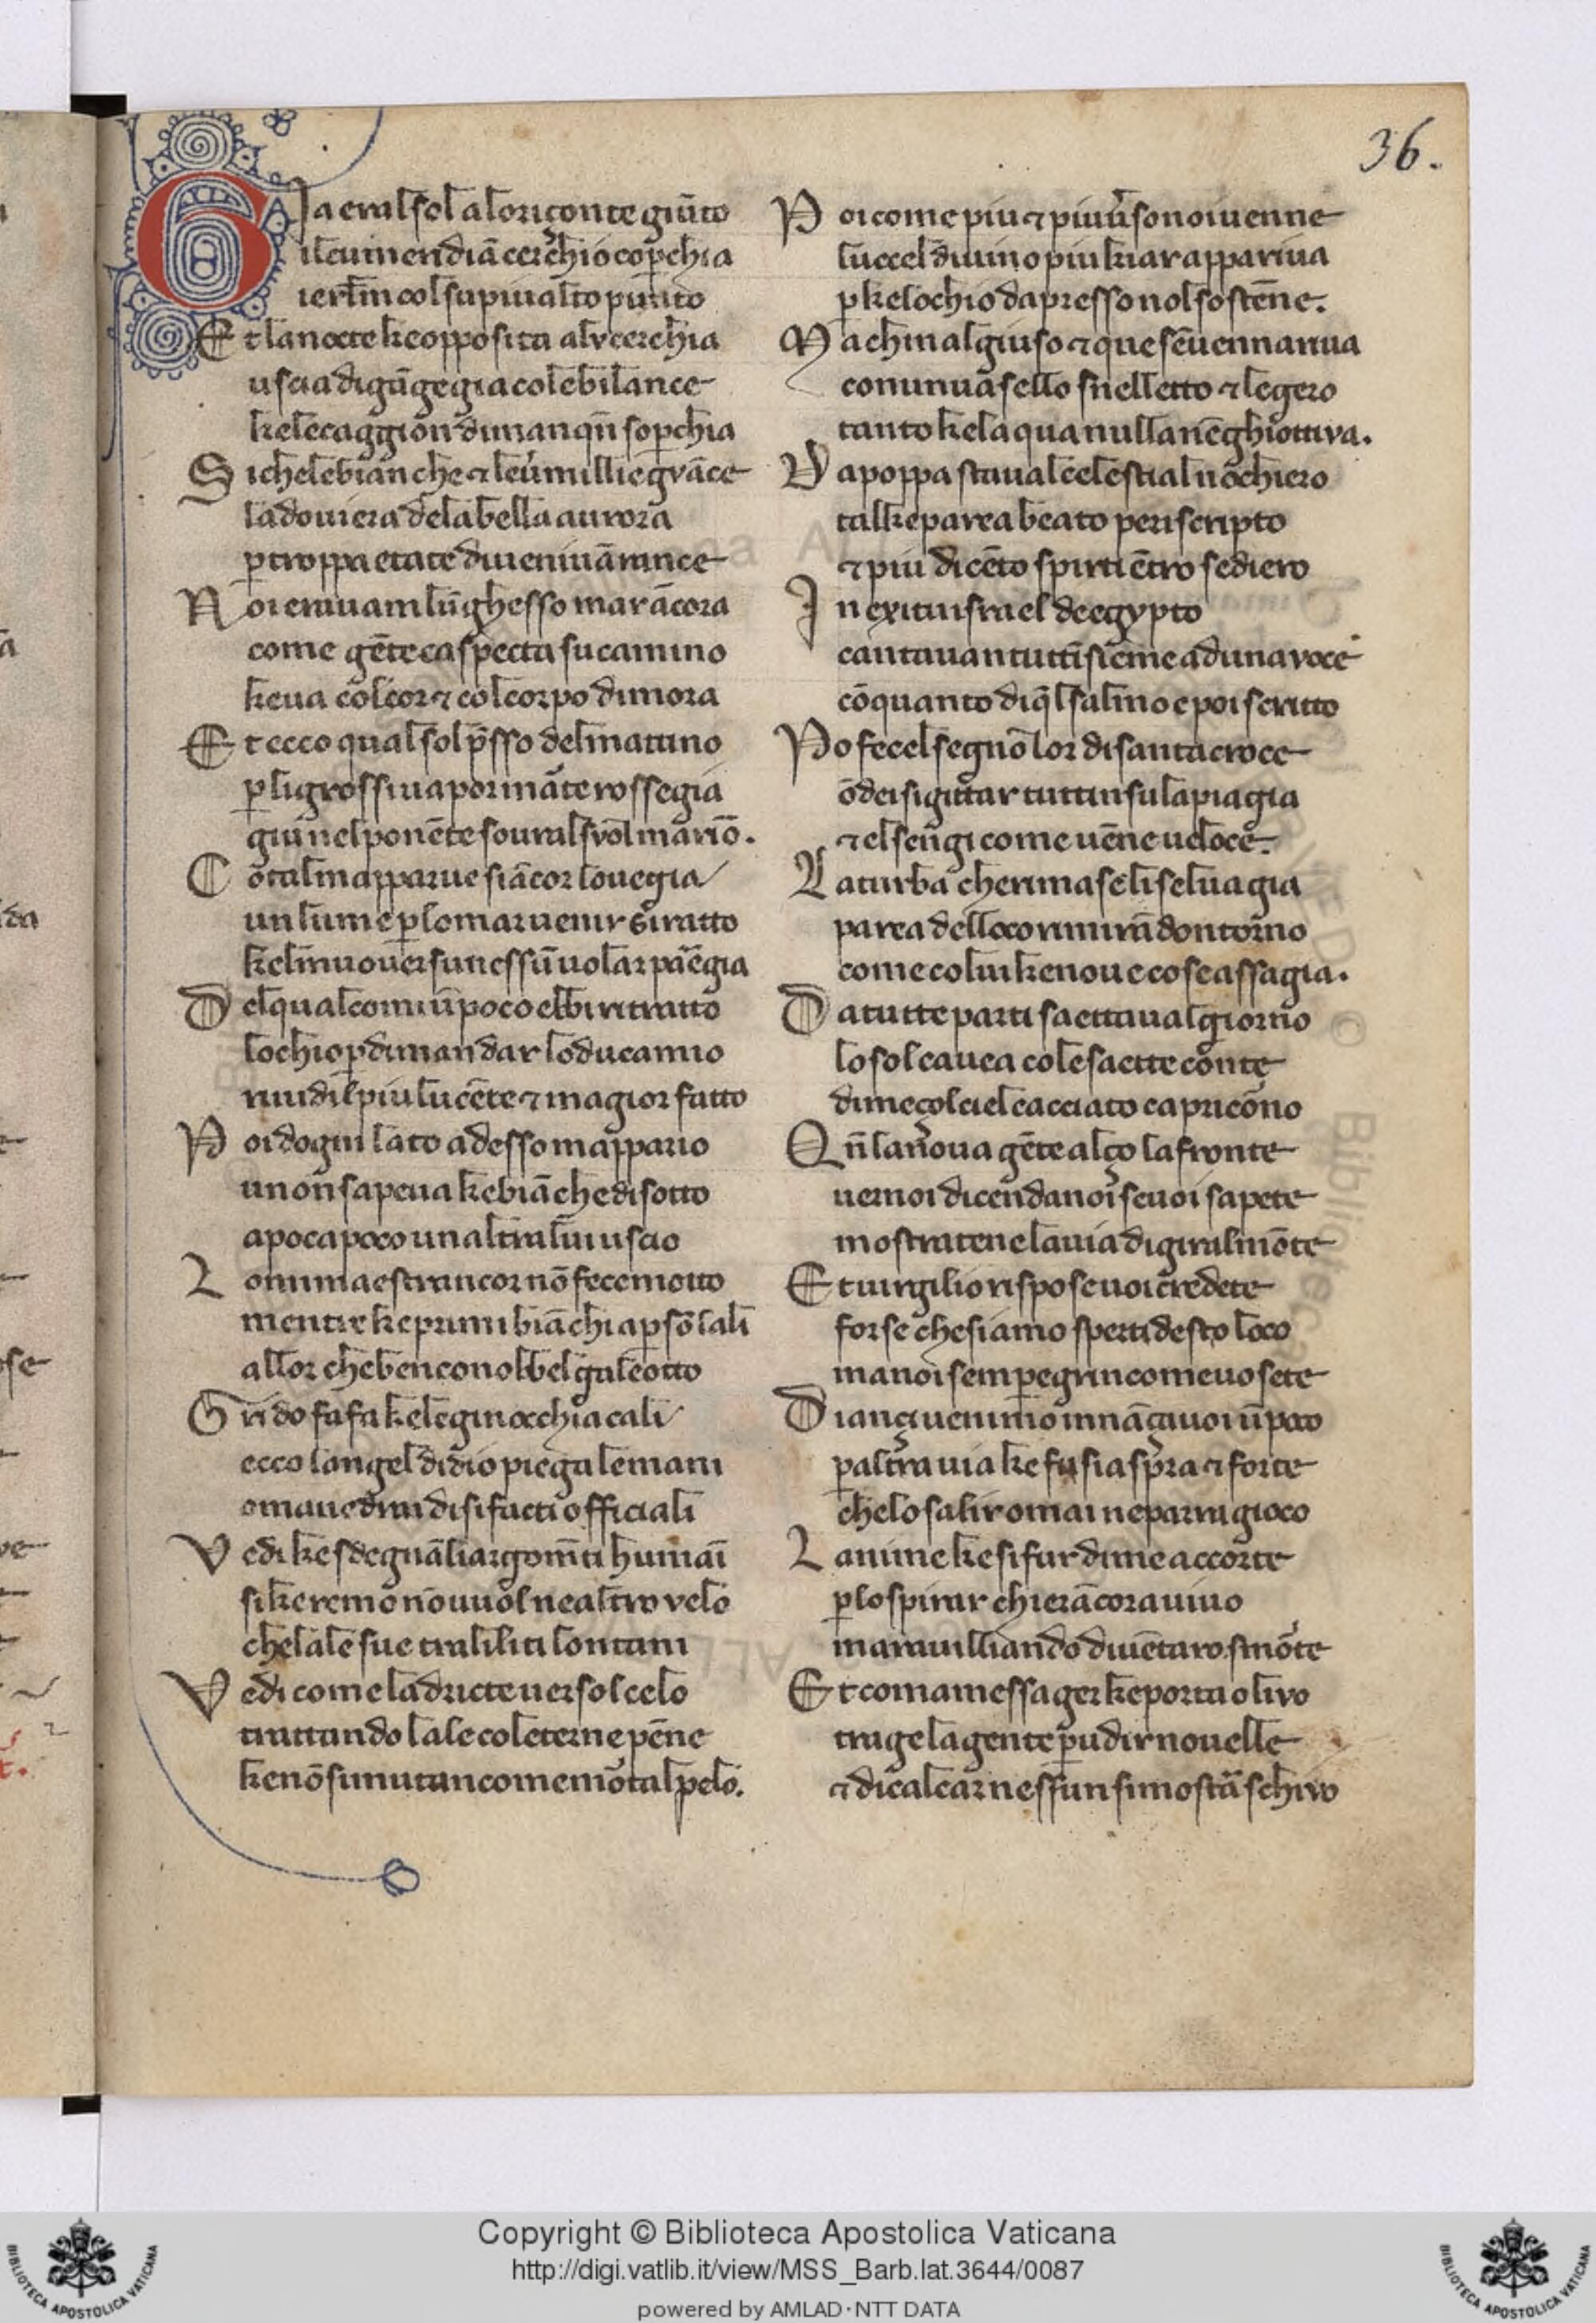 36.
GIa eralsol aloriçonte giũto
ilcui meridiã cerchio cop̱chia
ierlm̃ col su piu alto punto
Et lanocte ke opposita alvi cerchia
uscia digãge gia colebilance
kelecaggion dimanqñ sop̱chia
Sichelebianche ⁊ leũmilliegvãce
ladoviera delabella aurora
p̱troppa etate diuenivã rance
Noi eravam lũghesso mar ãcora
come gẽte caspecta sucamino
keua colcor ⁊ colcorpo dimora
Et ecco qual sol p̃sso delmatino
p̱ligrossi uapor mãte rossegia
giu nelponẽte soural svol marĩo.
Cõtal mapparue siãcor lo uegia
un lume p̱lomar uenir si ratto
kelmuouer su nessũ uolar pãregia
Delqual com iũ poco ebbi ritratto
lochio p̱dimandar loduca mio
riuidil piu lucẽte ⁊ magior fatto
Poi dogni lato adesso mappario
unon sapeua ke biãche disotto
apoc apoco unaltra lui uscio
Lo mi maestr ancor nõ fece motto
mentre ke primi biãchi ap̱son lali
allor che ben conobbel galeotto
Grido fa fa kelegin occhia cali
ecco langel didio piega lemani
omai uedrai disifacti officiali
Vedi kesdegnã liargomẽti humãi
sike remo nõ uuol ne altro velo
chelale sue tra liliti lontani
Vedi come ladricte uersol celo
trattando lale coleterne pẽne
kenõ simutan come mõtal pelo.
Poi come piu ⁊ piu ũso noi uenne
luccel diuino piu kiar appariua
p̱kelochio dapresso nol sostẽne.
Ma chinal giuso ⁊ que sẽ uenn a riua
con un uasello snelletto ⁊ legero
tanto kelaqua nulla nẽ ghiottiva.
Da poppa staual celestial nochiero
tal ke parea beato per iscripto
⁊ piu dicẽto spirti ẽtro sediero
In exitu israel de egypto
cantauan tutti ĩsieme aduna voce
cõ quanto diq̃l salmo e poi scritto
Po fecel segno lor disanta croce
õdei si gittar tutti in sula piagia
⁊ el sen gi come uẽne ueloce.
La turba che rimase li seluagia
parea delloco rimirãdo ntorno
come colui ke noue cose assagia.
Da tutte parti saettaual giorno
lo sol cauea cole saette conte
dimeço lciel cacciato capricõno
Qñ la noua gẽte alço la fronte
uer noi dicendo a noi se uoi sapete
mostratene la uia digir almõte
Et uirgilio rispose uoi credete
forse che siamo sperti desto loco
ma noi sem p̱egrin come uo sete
Diançi uenimo innãçi uoi ũ poco
p̱altra uia ke fu si aspra ⁊ forte
chelo salir omai ne parra gioco
Lanime ke sifur dime accorte
p̱lo spirar chi era ãcora uiuo
marauilliando diuẽtaro smorte
Et com a messager ke porta olivo
trage la gente p̱ udir nouelle
⁊ di calcar nessun si mostã schivo
Copyright © Biblioteca Apostolica Vaticana
http://digi.vatlib.it/view/MSS_Barb.lat.3644/0087
powered by AMLAD·NTT DATA
BIBLIOTECA APOSTOLICA VATICANA
BIBLIOTECA APOSTOLICA VATICANA